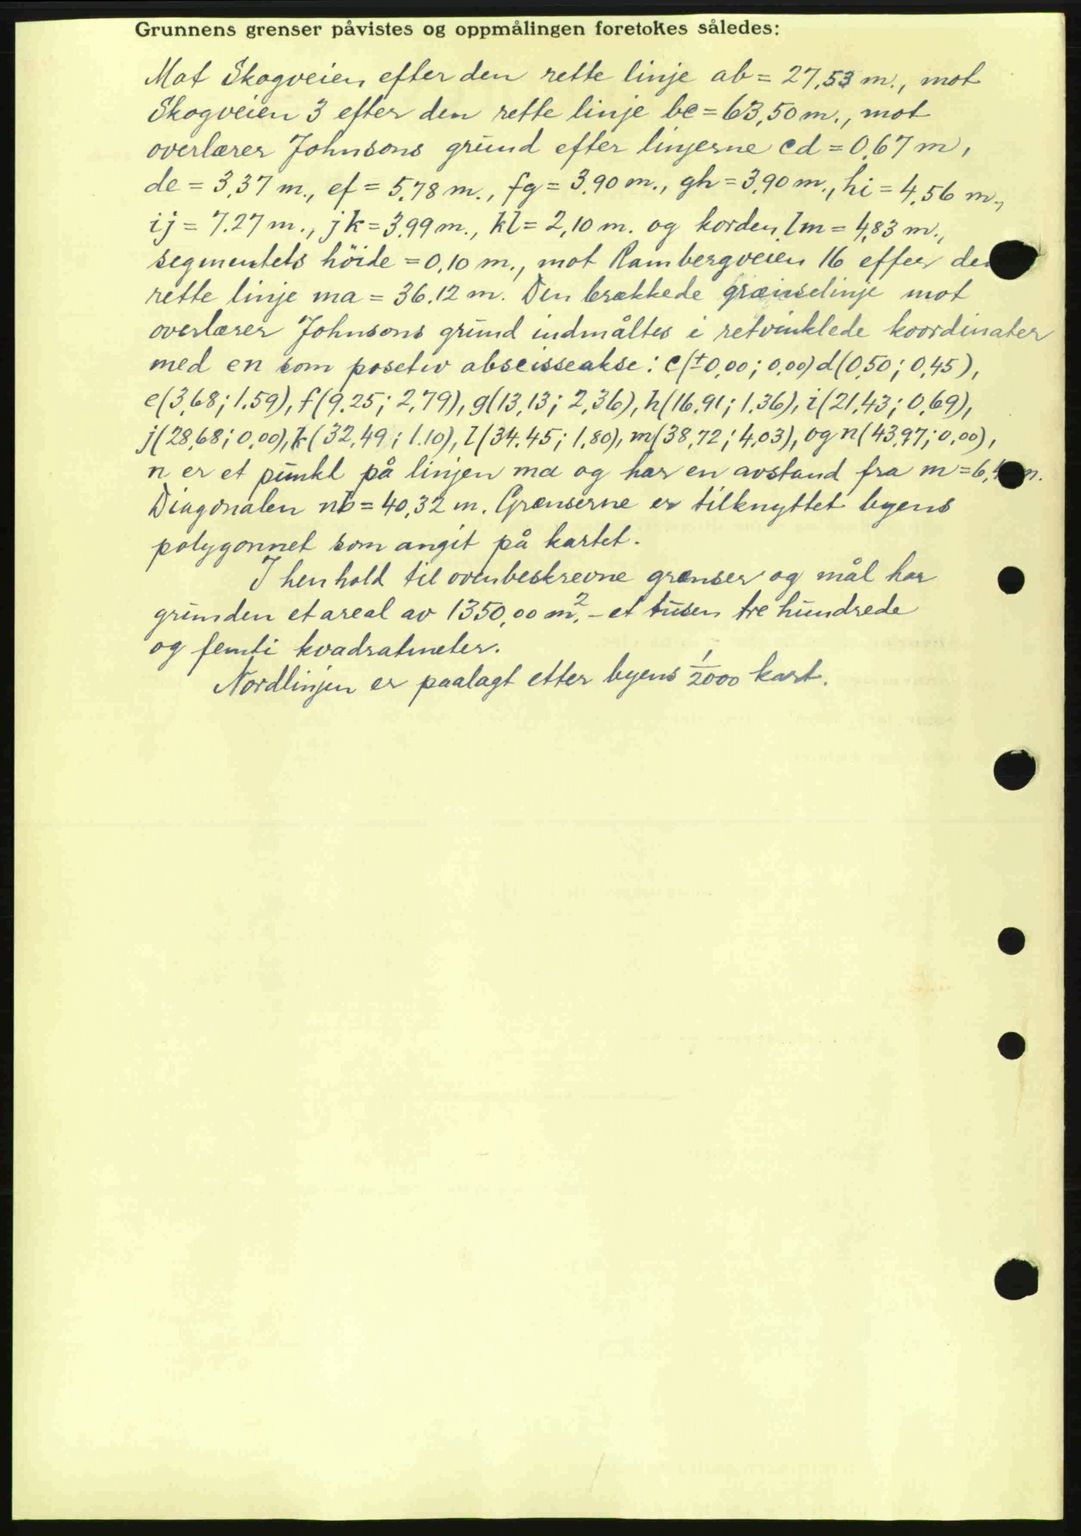 Grunnens grenser påvistes og oppmålingen foretokes således:
Mot Skogveien efter den rette linje ab = 27,53 m., mot
Skogveien 3 efter den rette linje bc = 63,50 m., mot
overlærer Johnsons grund efter linjerne cd = 0,67 m,
de = 3,37 m., ef = 5,78 m., fg = 3,90 m., gh = 3,90 m., hi = 4,56 m.,
ij = 7,27 m., jk = 3,99 m., kl = 2,10 m. og korden lm = 4,83 m.,
segmentets höide = 0,10 m., mot Rambergveien 16 efter den
rette linje ma = 36,12 m. Den brækkede grænselinje mot
overlærer Johnsons grund indmåltes i retvinklede koordinater
med cn som posetiv abscisseakse: c(±0,00; 0,00) d(0,50; 0,45),
e(3,68; 1,59), f(9,25; 2,79), g(13,13; 2,36), h(16,91; 1,36), i(21,43; 0,69),
j(28,68; 0,00), k(32,49; 1,10), l(34,45; 1,80), m(38,72; 4,03), og n(43,97; 0,00),
n er et punkt på linjen ma og har en avstand fra m = 6, m.
Diagonalen nb = 40,32 m. Grænserne er tilknyttet byens
polygonnet som angit på kartet.
I henhold til ovenbeskrevne grænser og mål har
grunden et areal av 1350,00 m². – et tusen tre hundrede
og femti kvadratmeter.
Nordlinjen er paalagt etter byens 1/2000 kart.